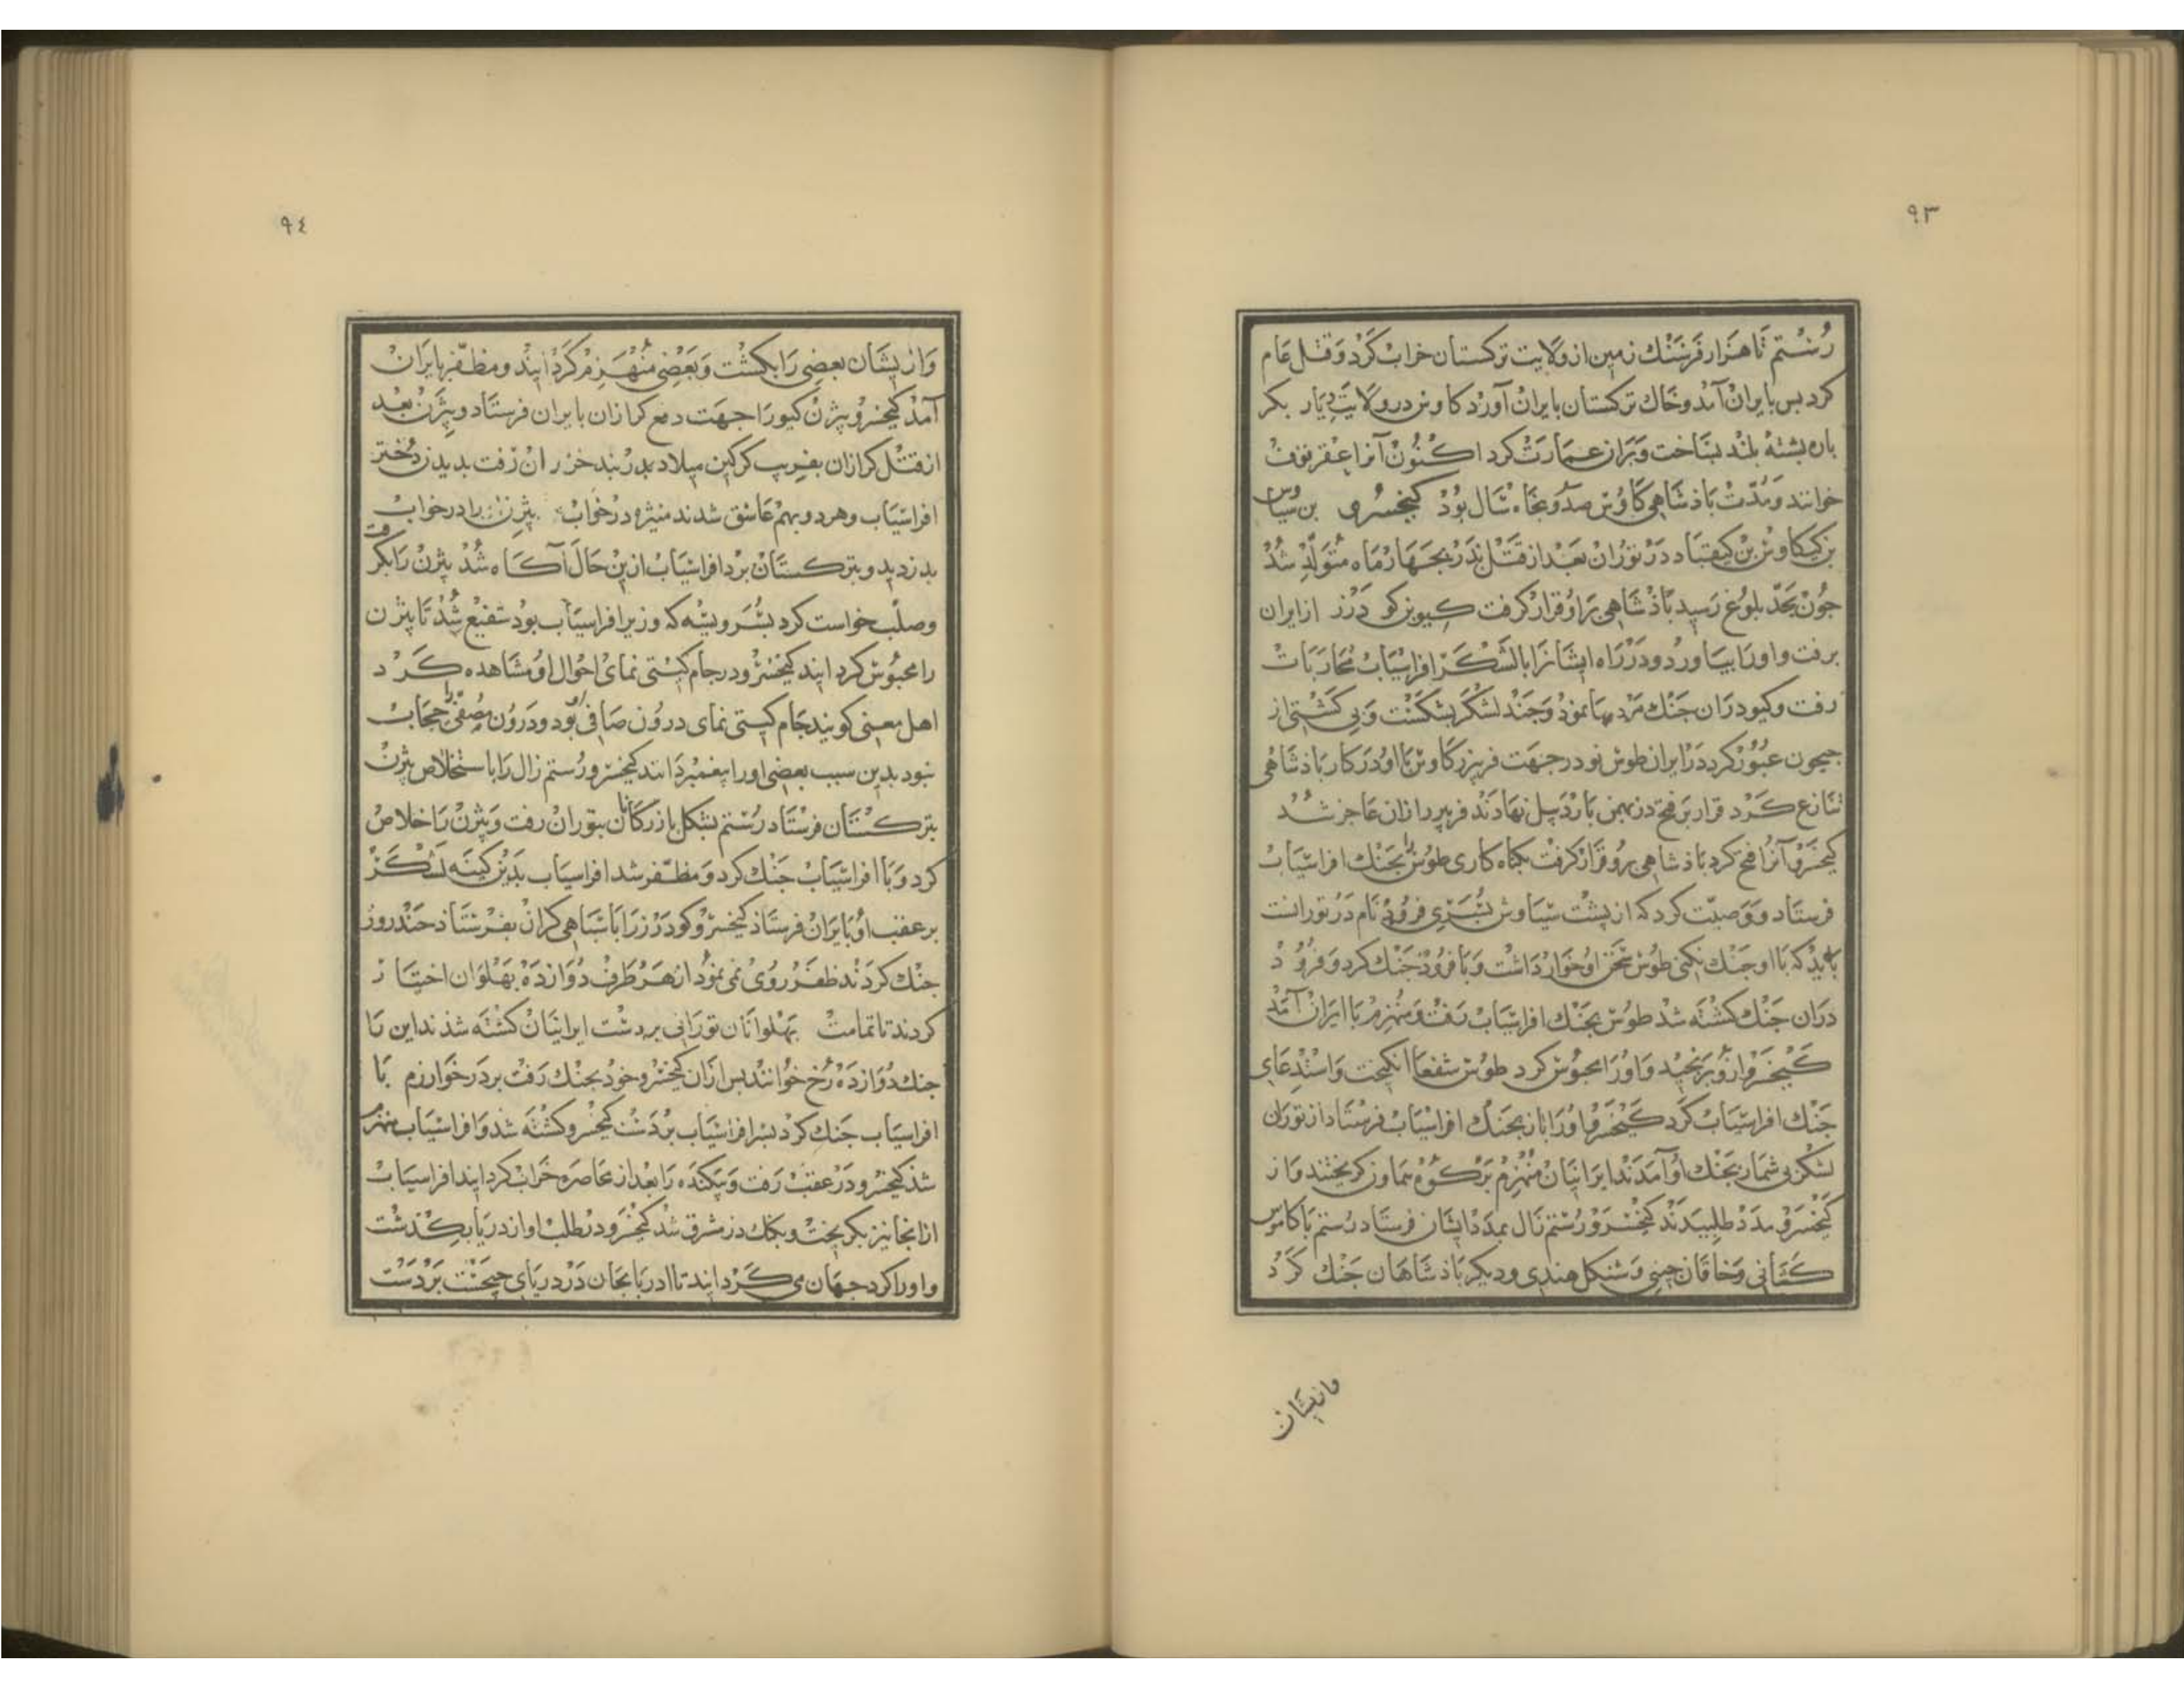 ٩٣
رُستم تا هزار فرسنك زمين از ولايت تركستان خراب كرد و قتل عام
كرد پس بايران آمد و خاك تركستان بايران آورد كاوس در ولايت ديار بكر
باره بشته بلند بساخت و بران عمارت كرد اكنون آنرا عقرقوف
خوانند و مدّت باذشاهى كاوس صد و بنجاه سال بود كيخسرو بن سياوس
بن كيكاوس بن كيقباد در توران بعد از قتل بدر بجهار ماه متولّد شد
جون بحدّ بلوغ رسيد باذشاهى برو قرار كرفت كيو بن كودرز از ايران
برفت و او را بياورد و در راه ايشانرا با لشكر افراسياب محاربات
رفت و كيو دران جنك مرديها نمود و جند لشكر بشكست و بى كشتى از
جيحون عبور كرد در ايران طوس نودر جهت فريبرز كاوس با او در كار باذشاهى
تنازع كرد قرار بر فتح دز بهمن باردبيل نهادند فريبرز ازان عاجز شد
كيخسرو آنرا فتح كرد باذشاهى برو قرار كرفت بكناه كارى طوس را بجنك افراسياب
فرستاد و وصيّت كرد كه از بشت سياوش بسرى فرود نام در تورانست
بايد كه با او جنك نكنى طوس سخن او خوار داشت و با فرود جنك كرد و فرود
دران جنك كشته شد طوس بجنك افراسياب رفت و منهزم با ايران آمد
كيخسرو ازو برنجيد و او را محبوس كرد طوس شفعا انكيخت و استدعاى
جنك افراسياب كرد كيخسرو او را باز بجنك افراسياب فرستاد از توران
لشكر بى شمار بجنك او آمدند ايرانيان منهزم بر كوه هماون كريختند و از
كيخسرو مدد طلبيدند كيخسرو رستم زال بمدد ايشان فرستاد رستم با كاموس
كشانى و خاقان جينى و شنكل هندى و ديكر باذشاهان جنك كرد
وازيشان
٩٤
وازيشان بعضى را بكشت و بعضى منهزم كردانيد و مظفّر بايران
آمد كيخسرو بيژن كيو را جهت دفع كرازان بايران فرستاد و بيژن بعد
از قتل كرازان بفريب كركين ميلاد بدر بند خزران رفت بديدن دختر
افراسياب و هر دو بهم عاشق شدند منيژه در خواب بيژن را در خواب
بدزديد و بتركستان برد افراسياب ازين حال آكاه شد بيژن را بكرفت
و صلب خواست كرد بسر ويسه كه وزير افراسياب بود شفيع شد تا بيژن
را محبوس كردانيد كيخسرو در جام كيتى نماى احوال او مشاهده كرد
اهل معنى كويند جام كيتى نماى درون صافى او بود و درون مصفّى را حجاب
نبود بدين سبب بعضى او را بيغمبر دانند كيخسرو رستم زال را باستخلاص بيژن
بتركستان فرستاد رستم بشكل بازركانان بتوران رفت و بيژن را خلاص
كرد و با افراسياب جنك كرد و مظفّر شد افراسياب بدين كينه لشكر
بر عقب او بايران فرستاد كيخسرو كودرز را با سباهى كران بفرستاد جند روز
جنك كردند ظفر روى نمى نمود از هر طرف دوازده بهلوان اختيار
كردند تا تمامت بهلوانان تورانى بر دست ايرانيان كشته شدند اين را
جنك دوازده رخ خوانند بس ازان كيخسرو خود بجنك رفت بر در خوارزم با
افراسياب جنك كرد بسر افراسياب بر دست كيخسرو كشته شد و افراسياب منهزم
شد كيخسرو در عقب رفت و بيكنده را بعد از محاصره خراب كردانيد افراسياب
از انجا نيز بكريخت و بكنك دز مشرق شد كيخسرو در طلب او از دريا بكذشت
و او را كرد جهان مى كردانيد تا ادربايجان در درياى جيجست بر دست